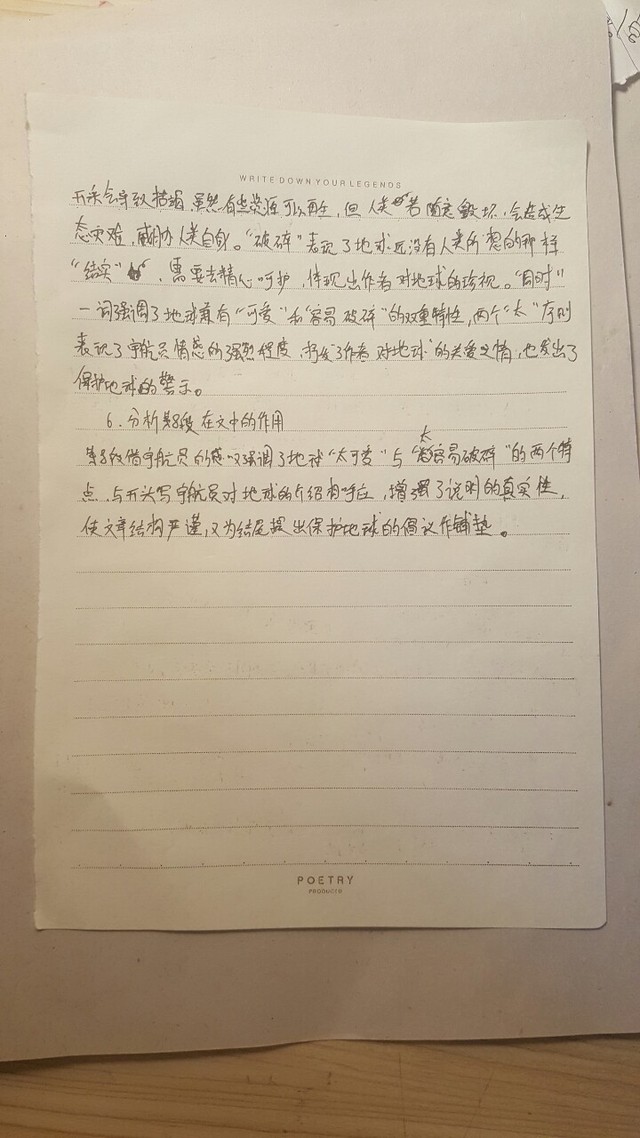 WRITE DOWN YOUR LEGENDS
开采会导致枯竭，虽然有些资源可以再生，但人类若随意毁坏，会造成生
态灾难，威胁人类自身。“破碎”表现了地球远没有人类所想的那样
“结实”，需要去精心呵护，体现出作者对地球的珍视。“同时”
一词强调了地球兼有“可爱”和“容易破碎”的双重特性，两个“太”字则
表现了宇航员情感的强烈程度，抒发了作者对地球的关爱之情，也发出了
保护地球的警示。
6. 分析第8段在文中的作用
第8段借宇航员的感叹强调了地球“太可爱”与“太容易破碎”的两个特
点，与开头写宇航员对地球的介绍相呼应，增强了说明的真实性，
使文章结构严谨，又为结尾提出保护地球的倡议作铺垫。
POETRY
PRODUCTS